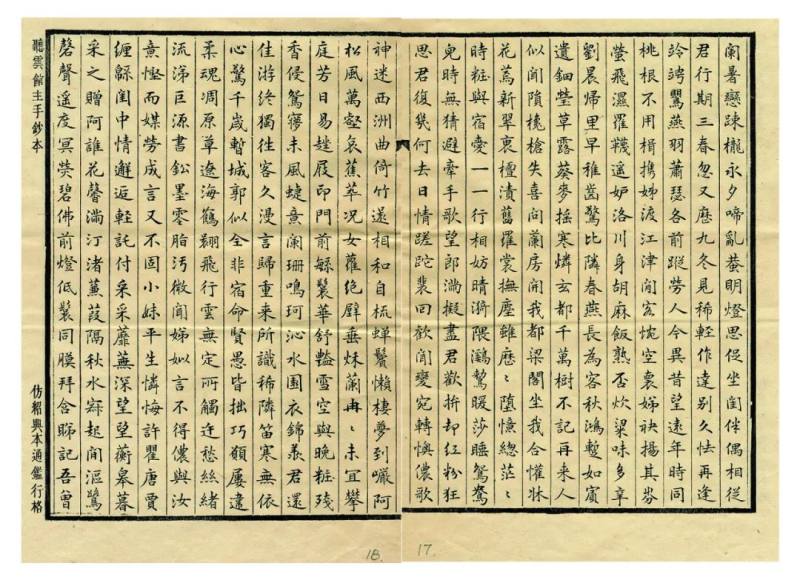 闌暑戀踈櫳永夕啼亂蛬明燈思促坐閨伴偶相從
君行期三春忽又歷九冬見稀輕作達別久怯再逢
竛竮鸎燕羽蕭瑟各前蹤勞人今異昔望遠年時同
桃根不用楫携娣渡江津閒宕惋空裏娣袂揚其芬
螢飛濕羅韈遥妒洛川身胡麻飯熟否炊粱味多辛
劉晨歸里早稚齒驚比隣春燕長為客秋鴻蹔如賓
遺鈿瑩草露葵麥摇寒燐玄都千萬樹不記再来人
似聞隤槐槍失喜向蘭房開我都梁閣坐我合懽牀
花蔫新翠裛檀漬舊羅裳撫塵雖歷〻墮憶總茫〻
時粧與宿愛一一行相妨晴漪隈鸂鶒暖莎睡鴛鴦
兒時無猜避牽手歌望郎滿擬盡君歡折却红粉狂
思君復幾何去日情蹉跎裴回歡聞變宛轉懊儂歌
神迷西洲曲倚竹還相和自梳蟬鬢懶棲夢到囉阿
松風萬壑哀蕉萃况女蘿绝壁垂秌蘭冉〻未宜攀
庭芳日易趖屐印門前躲鬟華舒豔靈空與晚粧残
香侵鴛寢未風蜨意闌珊鳴珂沁水園衣錦羕君還
佳游终獨往客久漫言歸重来所識稀隣笛寒無依
心驚千歳暫城郭似全非宿命賢愚皆拙巧願屢違
柔魂凋原草遼海鶴翩飛行雲無定所觸迕愁絲緒
流涕巨源書鈆墨零脂污微聞娣姒言不得儂與汝
意慳而媒勞成言又不固小妹平生憐悔許瞿唐賈
纒緜閨中情邂逅輕託付采采蘼蕪深望望蘅皋暮
采之贈阿誰花馨滿汀渚蒹葭隔秋水寐起聞漚鷺
磬聲遥度冥荧碧佛前燈低鬟同膜拜含睇記吾曾
聽雲館主手鈔本
仿紹興本通鑑行格
18.
17.